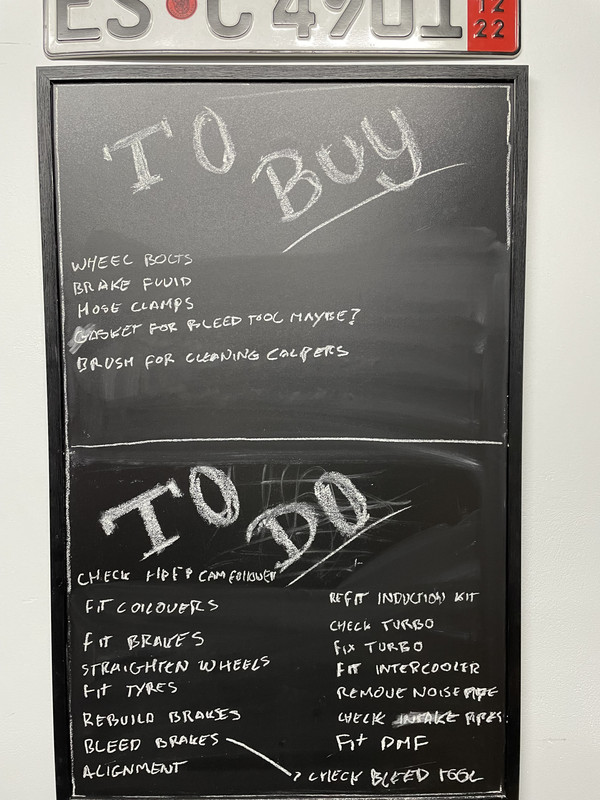 ES C 4901 12
22
TO BUY
WHEEL BOLTS
BRAKE FLUID
HOSE CLAMPS
GASKET FOR BLEED TOOL MAYBE?
BRUSH FOR CLEANING CALIPERS
TO DO
CHECK HPFP CAM FOLLOWER
FIT COILOVERS
FIT BRAKES
STRAIGHTEN WHEELS
FIT TYRES
REBUILD BRAKES
BLEED BRAKES
ALIGNMENT
REFIT INDUCTION KIT
CHECK TURBO
FIX TURBO
FIT INTERCOOLER
REMOVE NOISE PIPE
CHECK INTAKE PIPES
FIT DMF
? CHECK BLEED TOOL